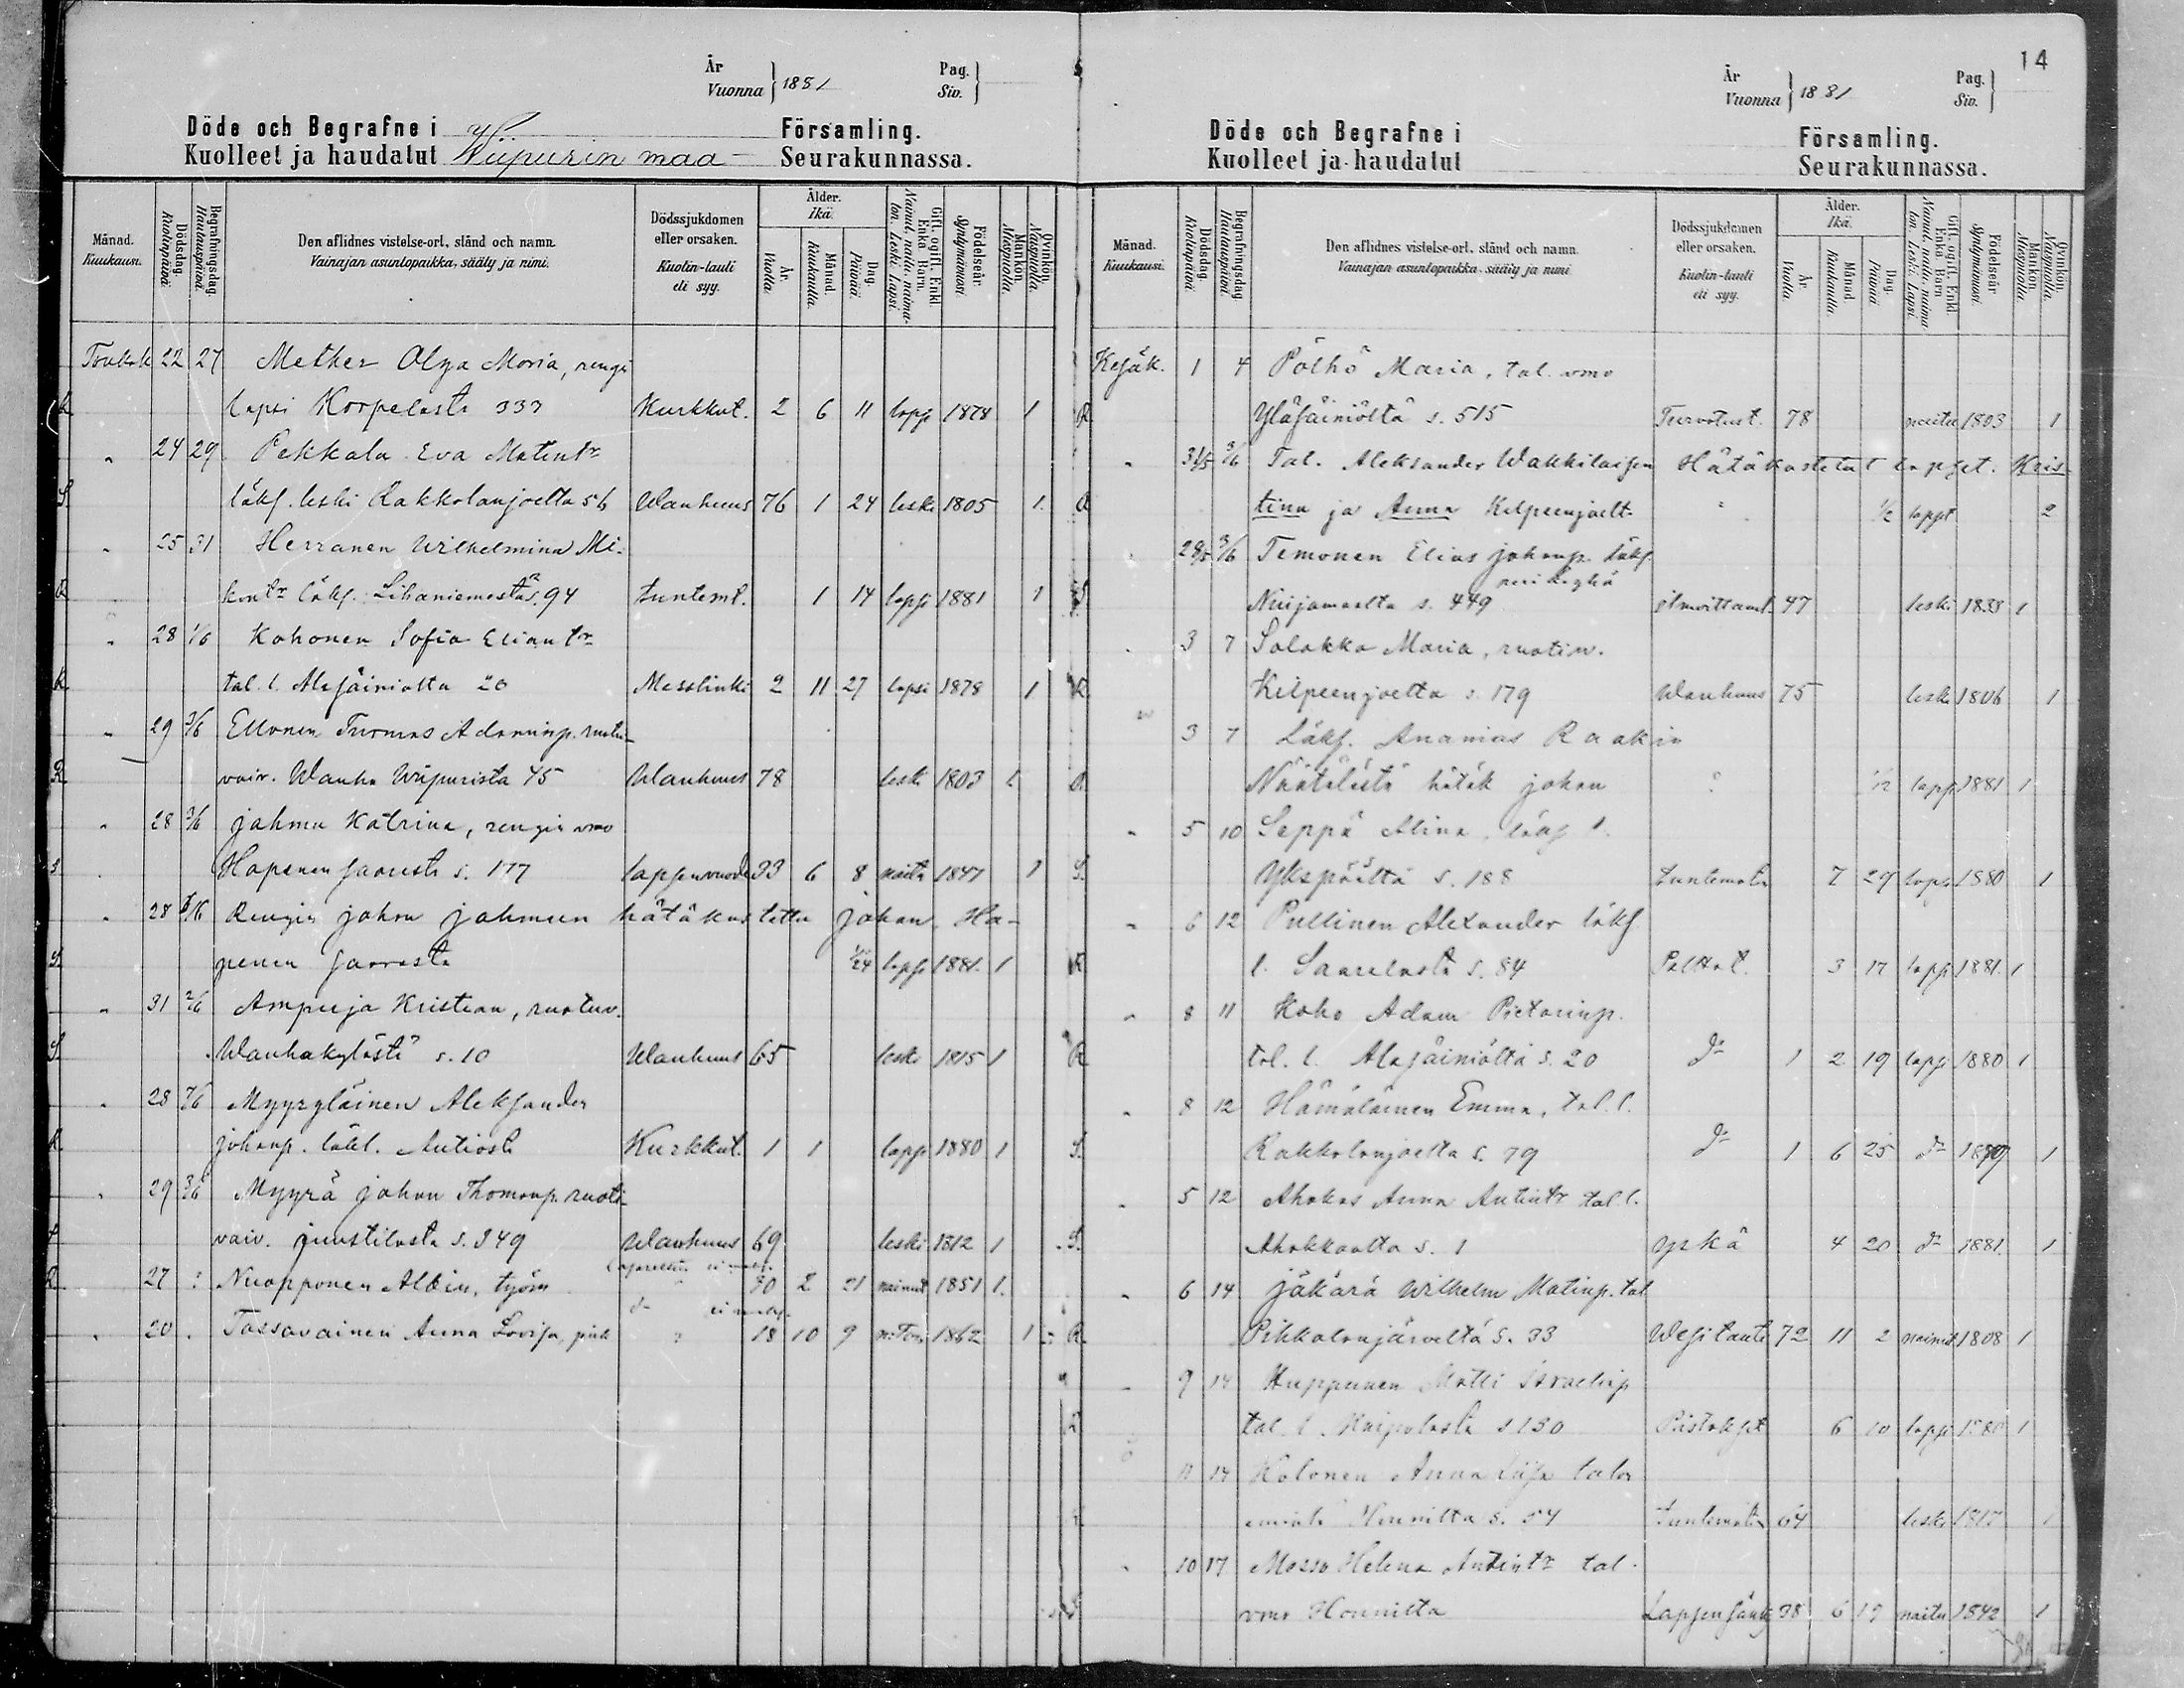 År
Vuonna } 1881
Pag.
Siv. }
Döde och Begrafne i
Kuolleet ja haudatut Wiipurin maa-
Församling.
Seurakunnassa.
Månad.
Kuukausi.
Dödsdag.
Kuolinpäivä.
Begrafningsdag.
Hautauspäivä.
Den aflidnes vistelse-ort, stånd och namn.
Vainajan asuntopaikka, sääty ja nimi.
Dödssjukdomen
eller orsaken.
Kuolin-tauti
eli syy.
Ålder.
Ikä.
År.
Vuotta.
Månad.
Kuukautta.
Dag.
Päivää.
Gift, ogift, Enkl.
Enka, Barn.
Nainut, naitu, naima-
ton, Leski, Lapsi.
Födelseår.
Syntymävuosi.
Mankön.
Miespuolia.
Qvinkön.
Naispuolia.
Toukok 22 27 Mether Olga Maria, rengi
R lapsi Korpelasta 333 Kurkkut. 2 6 11 laps 1878 1
" 24 29 Pekkala Eva Matintr
S. läksl. leski Rakkolanjoelta 56 Wanhuus 76 1 24 leski 1805 1.
" 25 31 Herranen Wilhelmina Mi-
R kontr läks. Lihaniemestä s. 94 tuntemt. 1 14 lapsi 1881 1
" 28 1/6 Kohonen Sofia Eliantr
R tal. l. Alasäiniöltä 20 Messlinki 2 11 27 lapsi 1878 1
" 29 3/6 Ellonen Tuomas Adaminp. ruotu-
R vaiv. Wanha Wiipurista 45 Wanhuus 78 leski 1803 1
" 28 3/6 Johmu Katrina, rengin vmo
S Hapenensaaresta s. 177 lapsenvuode 33 6 8 naitu 1847 1
" 28 Rengin Johan Johmun hätäkastettu Johan Ha-
S penen saaresta 1/24 lapsi 1881. 1
" 31 2/6 Ampuja Kristian, ruotuv.
S Wanhakylästä s. 10 Wanhuus 65 leski 1815 1
" 28 7/6 Myyryläinen Aleksander
R Johanp. läksl. Autiosta Kurkkut. 1 1 laps 1880 1
" 29 3/6 Myyrä Johan Thomanp. ruotu
vaiv. Juustilasta s. 349 Wanhuus 69 leski 1812 1
R 27 : Nuopponen Albin, työm 30 2 21 nainut 1851 1.
" 20 . Tassavainen Anna Lovisa, piik 18 10 9 1862 1
14
År
Vuonna } 1881
Pag.
Siv. }
Döde och Begrafne i
Kuolleet ja haudatut
Församling.
Seurakunnassa.
Månad.
Kuukausi.
Dödsdag.
Kuolinpäivä.
Begrafningsdag.
Hautauspäivä.
Den aflidnes vistelse-ort, stånd och namn.
Vainajan asuntopaikka, sääty ja nimi.
Dödssjukdomen
eller orsaken.
Kuolin-tauti
eli syy.
Ålder.
Ikä.
År.
Vuotta.
Månad.
Kuukautta.
Dag.
Päivää.
Gift, ogift, Enkl.
Enka, Barn.
Nainut, naitu, naima-
ton, Leski, Lapsi.
Födelseår.
Syntymävuosi.
Mankön.
Miespuolia.
Qvinkön.
Naispuolia.
Kesäk. 1 4 Pölhö Maria, tal. vmo
R Yläsäiniöltä s. 515 Turvotust. 78 naitu 1803 1
" 31/5 3/6 Tal. Aleksander Wakkilaisen Hätäkastetut lapset. Kris-
R tina ja Anna Kilpeenjoelt. " 1/2 lapset 2
28/5 3/6 Temonen Elias Johanp. läks.
S Nuijamaalta s. 449 ilmoittamt. 47 leski 1833 1
3 7 Solakka Maria, ruotiv.
R Kilpeenjoelta s. 179 Wanhuus 75 leski 1806 1
3 7 Läks. Ananias Raakin
R Näätälästä hätäk Johan " 1/2 laps 1881 1
" 5 10 Seppä Alina, läks l.
S. Ykspäältä s. 188 tuntematn 7 29 laps 1880 1
" 6 12 Pullinen Alexander läks
R l. Saarelasta s. 84 Polttot. 3 17 lapsi 1881. 1
" 8 11 Koho Adam Pietarinp.
R tal. l. Alasäiniöltä s. 20 do 1 2 19 lapsi 1880 1
" 8 12 Hämäläinen Emma, tal. l.
S. Rakkolanjoelta s. 79 do 1 6 25 do 1879 1
" 5 12 Ahokas Anna Antintr tal. l.
S. Ahokkaalta s. 1 yskä 4 20 do 1881. 1
" 6 14 Jäkärä Wilhelm Matinp. tal
R Pihkalanjärveltä s. 33 Wesitauti 72 11 2 nainut 1808 1
" 9 14 Huppunen Matti Israelinp
R tal. l. Kaipolasta s 130 Pistokset 6 10 lapsi 1880 1
11 14 Kolonen Anna Liisa talon
R emäntä Hounilta s. 54 tuntematn 64 leski 1817 1
" 10 17 Masso Helena Antintr tal.
S vmo Hounilta Lapsensänky 38 6 19 naitu 1842 1